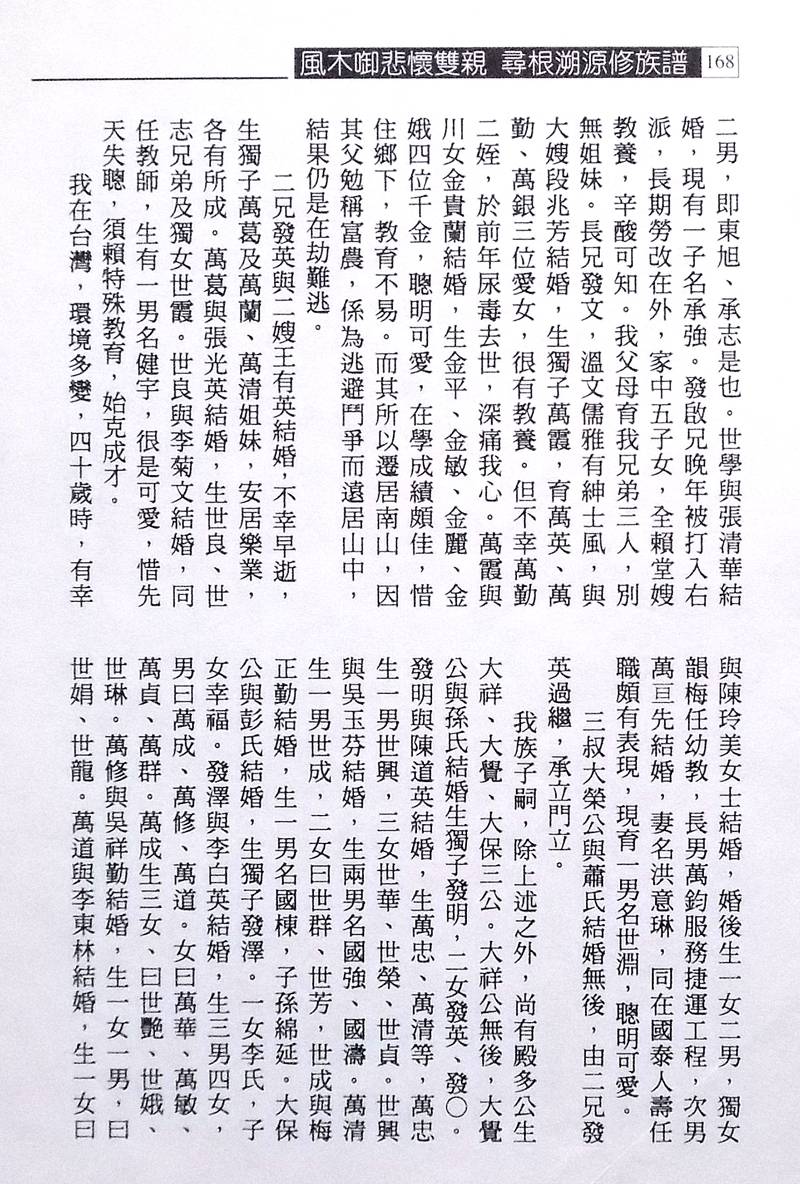 風木啣悲懷雙親 尋根溯源修族譜 168
二男，即東旭、承志是也。世學與張清華結
婚，現有一子名承強。發啟兄晚年被打入右
派，長期勞改在外，家中五子女，全賴堂嫂
教養，辛酸可知。我父母育我兄弟三人，別
無姐妹。長兄發文，溫文儒雅有紳士風，與
大嫂段兆芳結婚，生獨子萬霞，育萬英、萬
勤、萬銀三位愛女，很有教養。但不幸萬勤
二姪，於前年尿毒去世，深痛我心。萬霞與
川女金貴蘭結婚，生金平、金敏、金麗、金
娥四位千金，聰明可愛，在學成績頗佳，惜
住鄉下，教育不易。而其所以遷居南山，因
其父勉稱富農，係為逃避鬥爭而遠居山中，
結果仍是在劫難逃。
二兄發英與二嫂王有英結婚，不幸早逝，
生獨子萬葛及萬蘭、萬清姐妹，安居樂業，
各有所成。萬葛與張光英結婚，生世良、世
志兄弟及獨女世霞。世良與李菊文結婚，同
任教師，生有一男名健宇，很是可愛，惜先
天失聰，須賴特殊教育，始克成才。
我在台灣，環境多變，四十歲時，有幸
與陳玲美女士結婚，婚後生一女二男，獨女
韻梅任幼教，長男萬鈞服務捷運工程，次男
萬亘先結婚，妻名洪意琳，同在國泰人壽任
職頗有表現，現育一男名世淵，聰明可愛。
三叔大榮公與蕭氏結婚無後，由二兄發
英過繼，承立門立。
我族子嗣，除上述之外，尚有殿多公生
大祥、大覺、大保三公。大祥公無後，大覺
公與孫氏結婚生獨子發明，二女發英、發○。
發明與陳道英結婚，生萬忠、萬清等，萬忠
生一男世興，三女世華、世榮、世貞。世興
與吳玉芬結婚，生兩男名國強、國濤。萬清
生一男世成，二女曰世群、世芳，世成與梅
正勤結婚，生一男名國棟，子孫綿延。大保
公與彭氏結婚，生獨子發澤。一女李氏，子
女幸福。發澤與李白英結婚，生三男四女，
男曰萬成、萬修、萬道。女曰萬華、萬敏、
萬貞、萬群。萬成生三女、曰世艷、世娥、
世琳。萬修與吳祥勤結婚，生一女一男，曰
世娟、世龍。萬道與李東林結婚，生一女曰